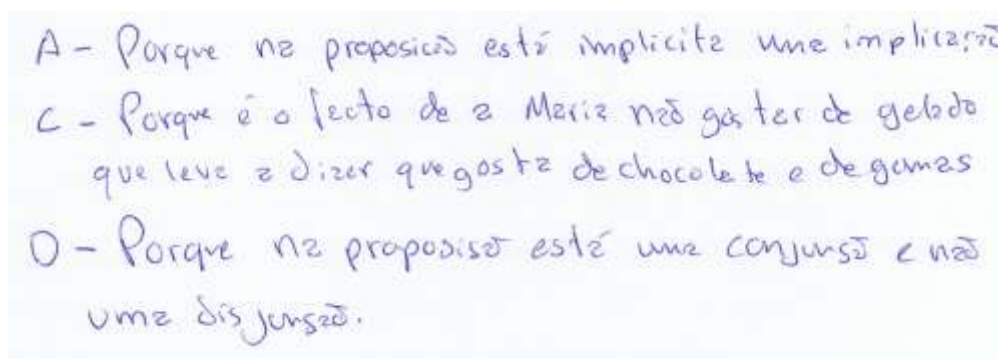 A - Porque na proposição está implicita uma implicação
C - Porque é o facto de a Maria não gostar de gelado
que leva a dizer que gosta de chocolate e de gomas
D - Porque na proposisão está uma conjunsão e não
uma disjunsão.